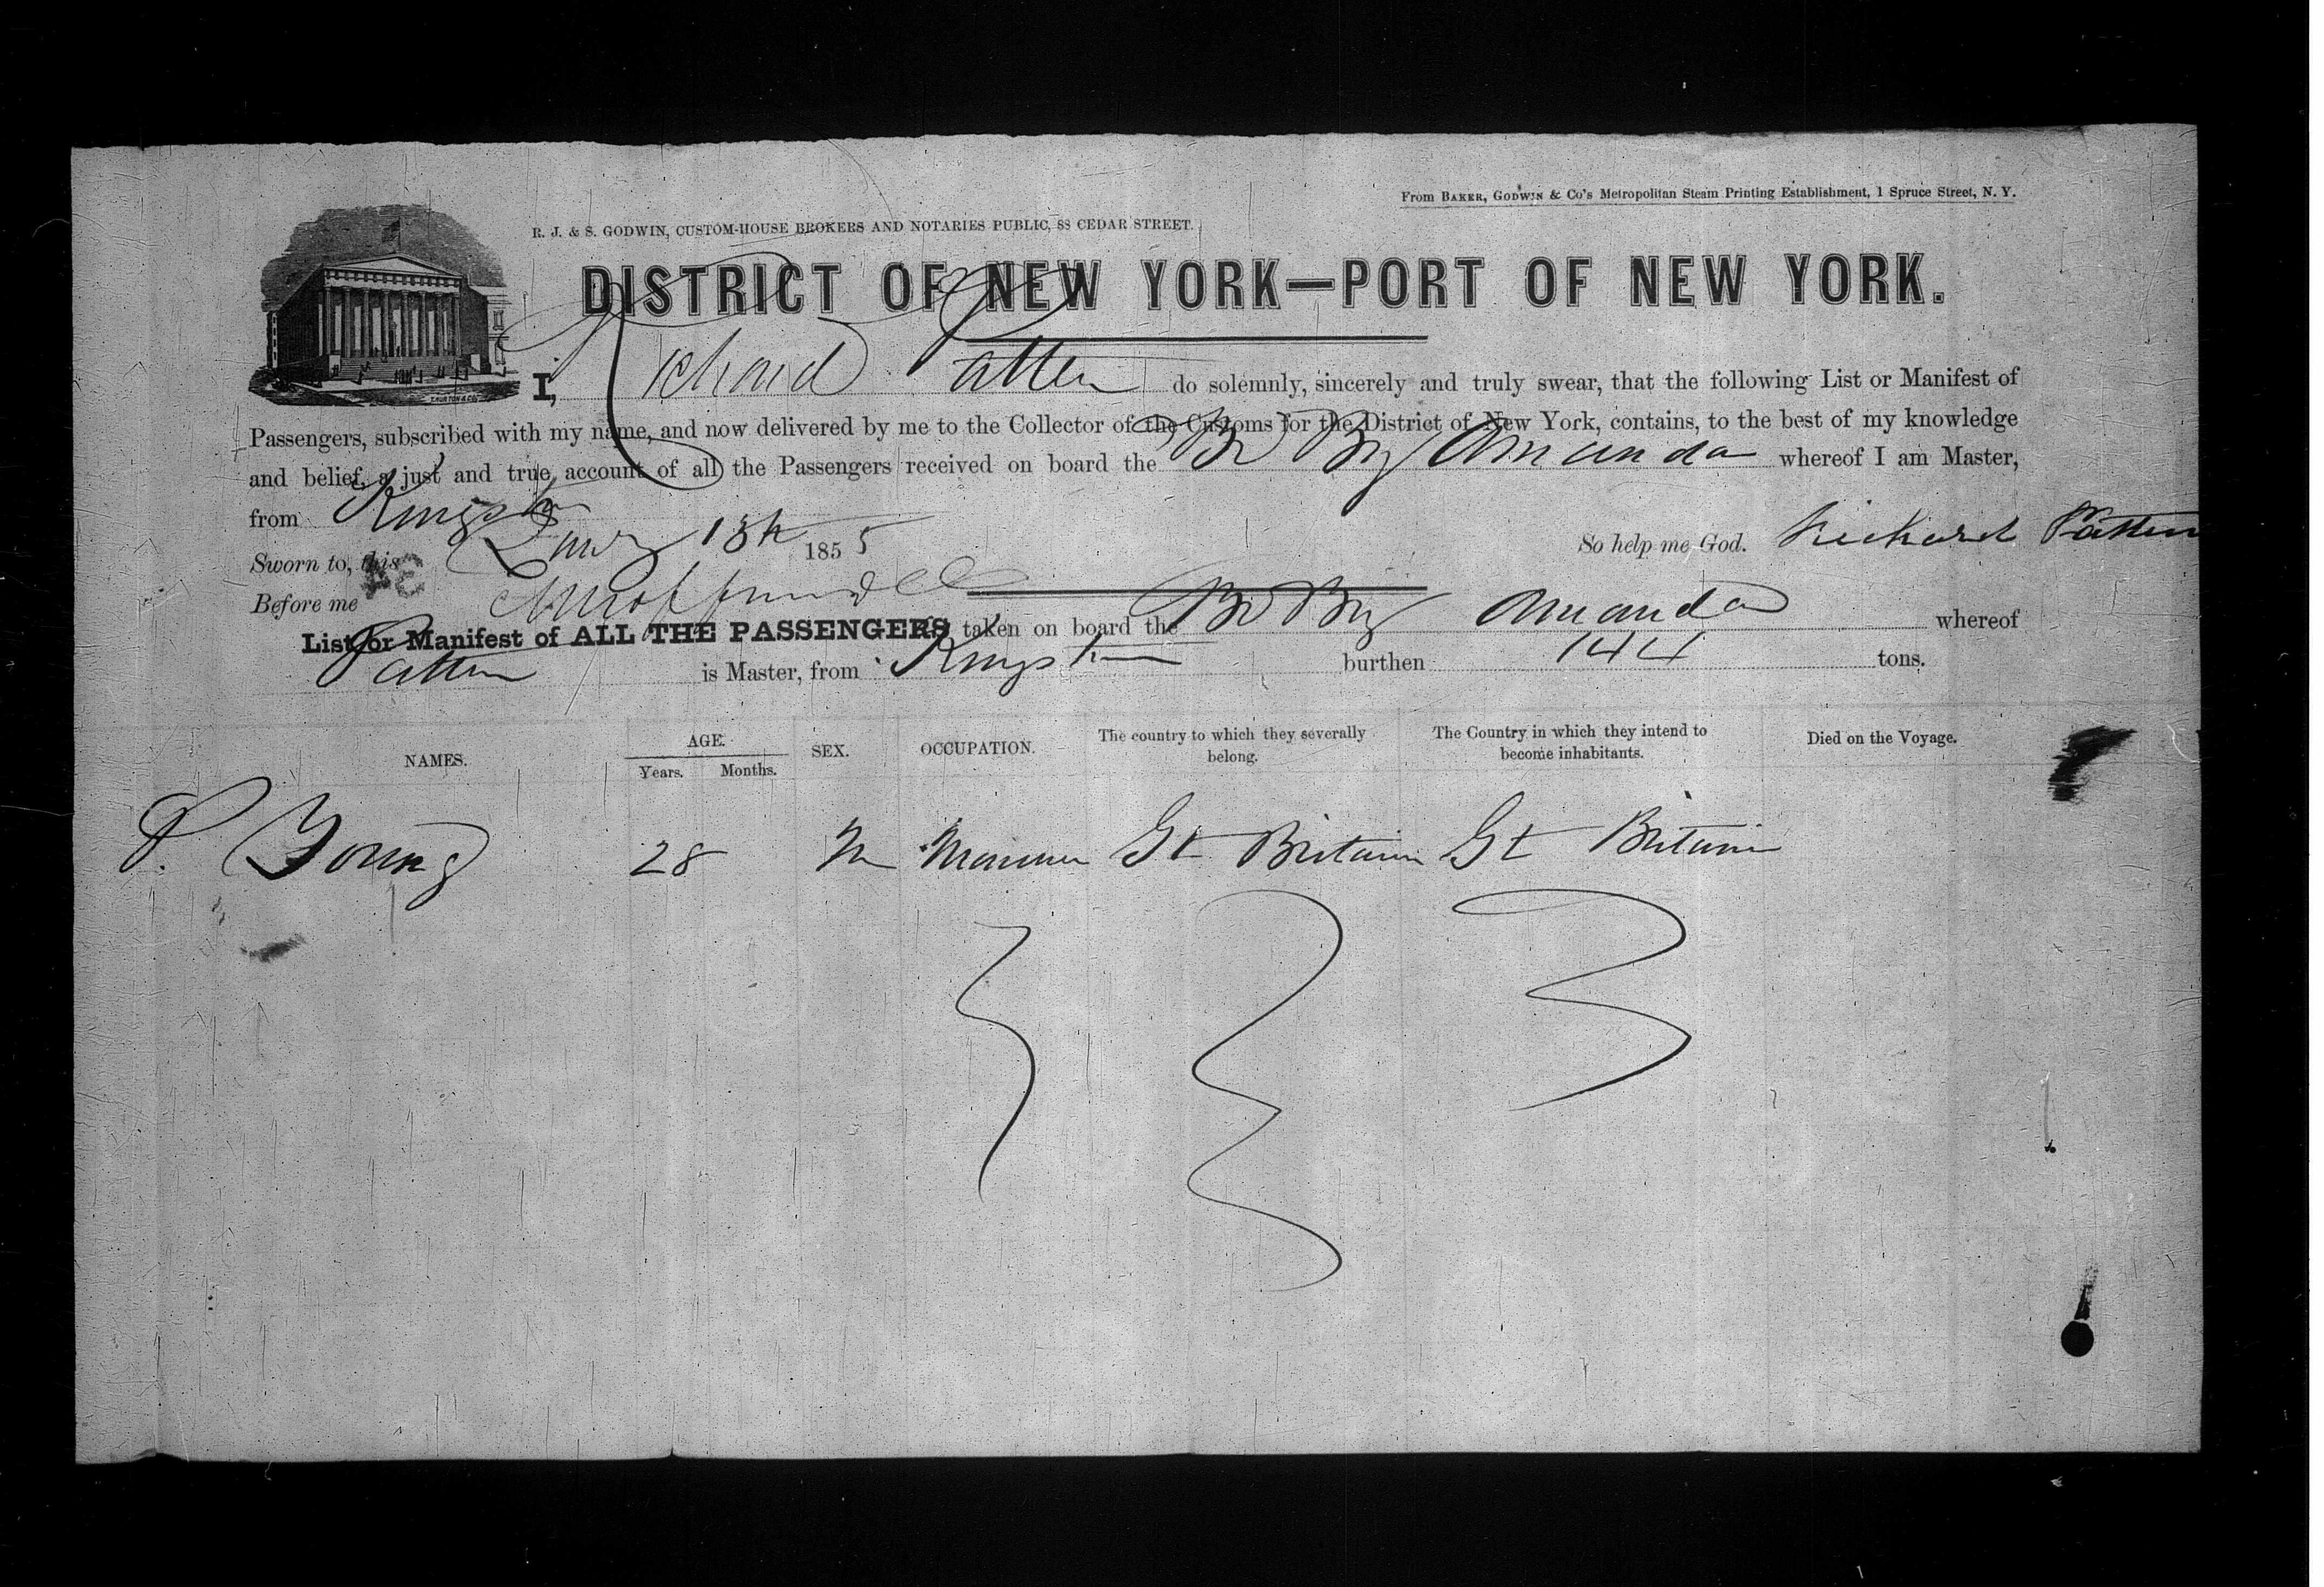 From BAKER, GODWIN & Co's Metropolitan Steam Printing Establishment, 1 Spruce Street, N. Y.
R. J. & S. GODWIN, CUSTOM-HOUSE BROKERS AND NOTARIES PUBLIC, 88 CEDAR STREET.
DISTRICT OF NEW YORK—PORT OF NEW YORK.
I, Richard Patten do solemnly, sincerely and truly swear, that the following List or Manifest of
Passengers, subscribed with my name, and now delivered by me to the Collector of the Customs for the District of New York, contains, to the best of my knowledge
and belief, a just and true account of all the Passengers received on board the Br Brig Amanda whereof I am Master,
from Kingston
Sworn to, this Jany 13th 1855 So help me God. Richard Patten
Before me
List or Manifest of ALL THE PASSENGERS taken on board the Br Brig Amanda whereof
Patten is Master, from Kingston burthen 144 tons.
NAMES. AGE. Years. Months. SEX. OCCUPATION. The country to which they severally belong. The Country in which they intend to become inhabitants. Died on the Voyage.
P. Young 28 M Mariner Gt Britain Gt Britain